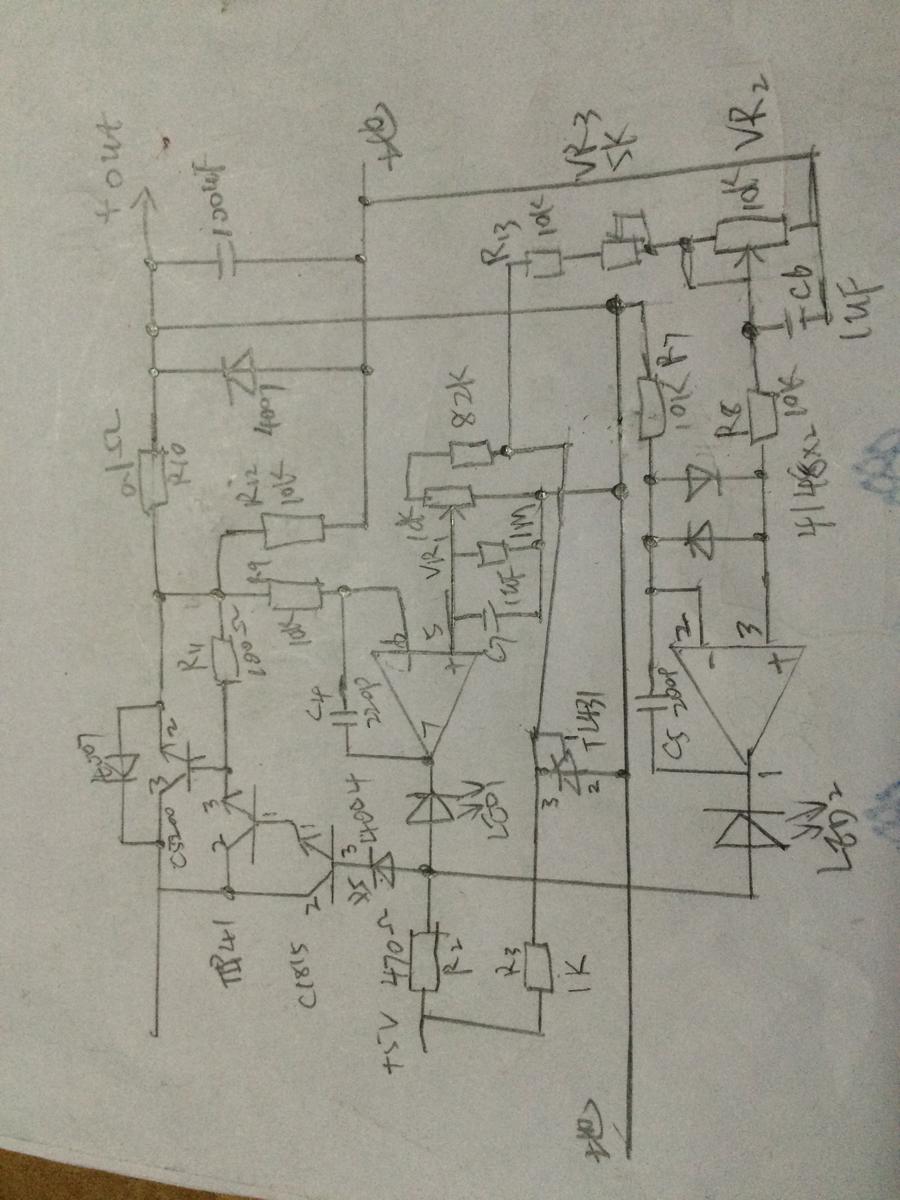 +out
100uF
0.1Ω
R10
4007
R12
10K
R9
10K
R11
100Ω
C4
220p
C5200
3
2
TIP41
2
3
1
C1815
2
1
3
D5
4004
+5V
470Ω
R2
LED1
7
6
5
+
VR1
1K
82K
C7
1uF
1M
R13
10K
VR3
5K
10K
VR2
C6
1uF
R7
10K
R8
10K
4148x2
C5
200p
2
-
3
+
1
LED2
R3
1K
TL431
3
1
2